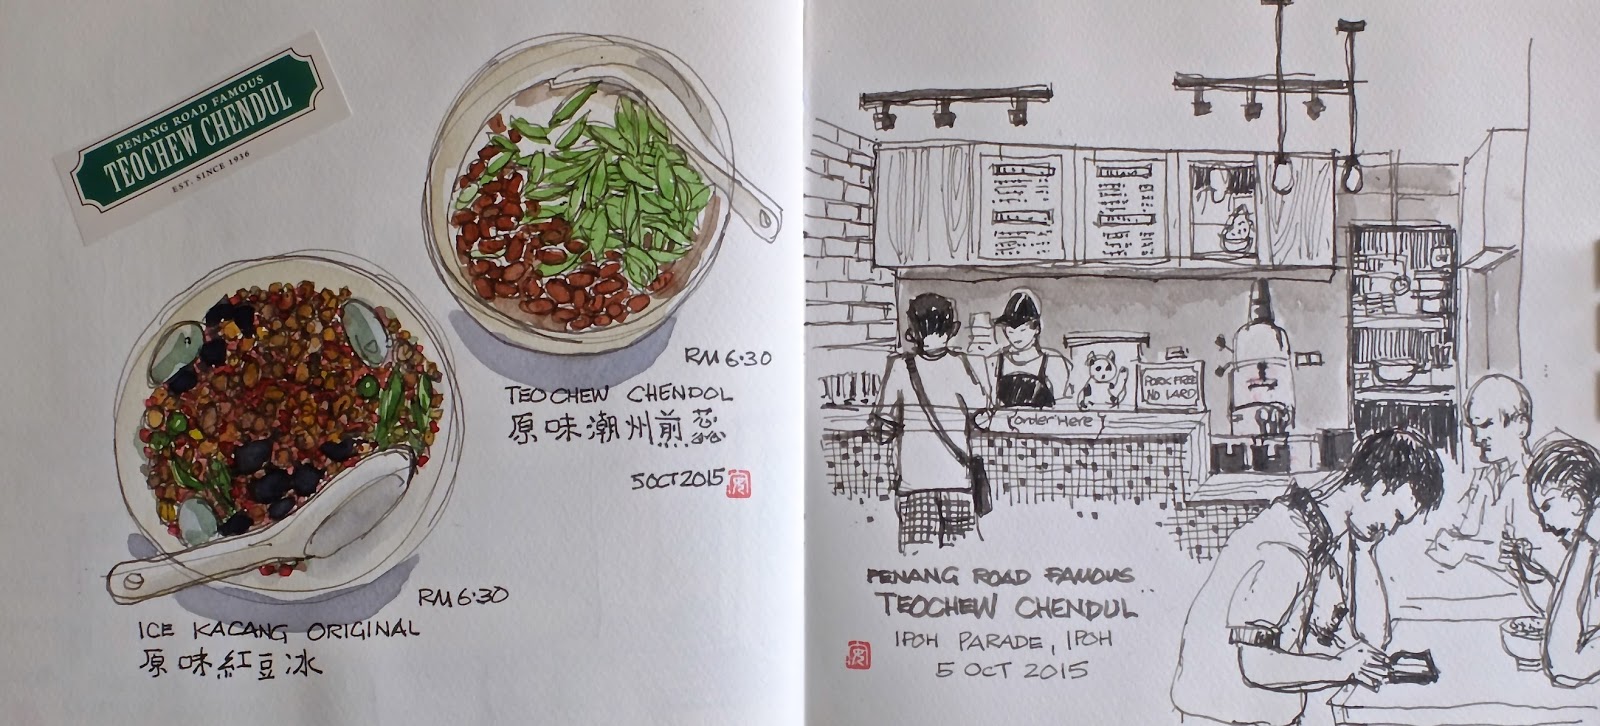 PENANG ROAD FAMOUS
TEOCHEW CHENDUL
EST. SINCE 1936
RM 6.30
TEOCHEW CHENDOL
原味潮州煎蕊
5 OCT 2015
RM 6.30
ICE KACANG ORIGINAL
原味紅豆冰
PORK FREE
NO LARD
order Here
PENANG ROAD FAMOUS
TEOCHEW CHENDUL
IPOH PARADE, IPOH
5 OCT 2015